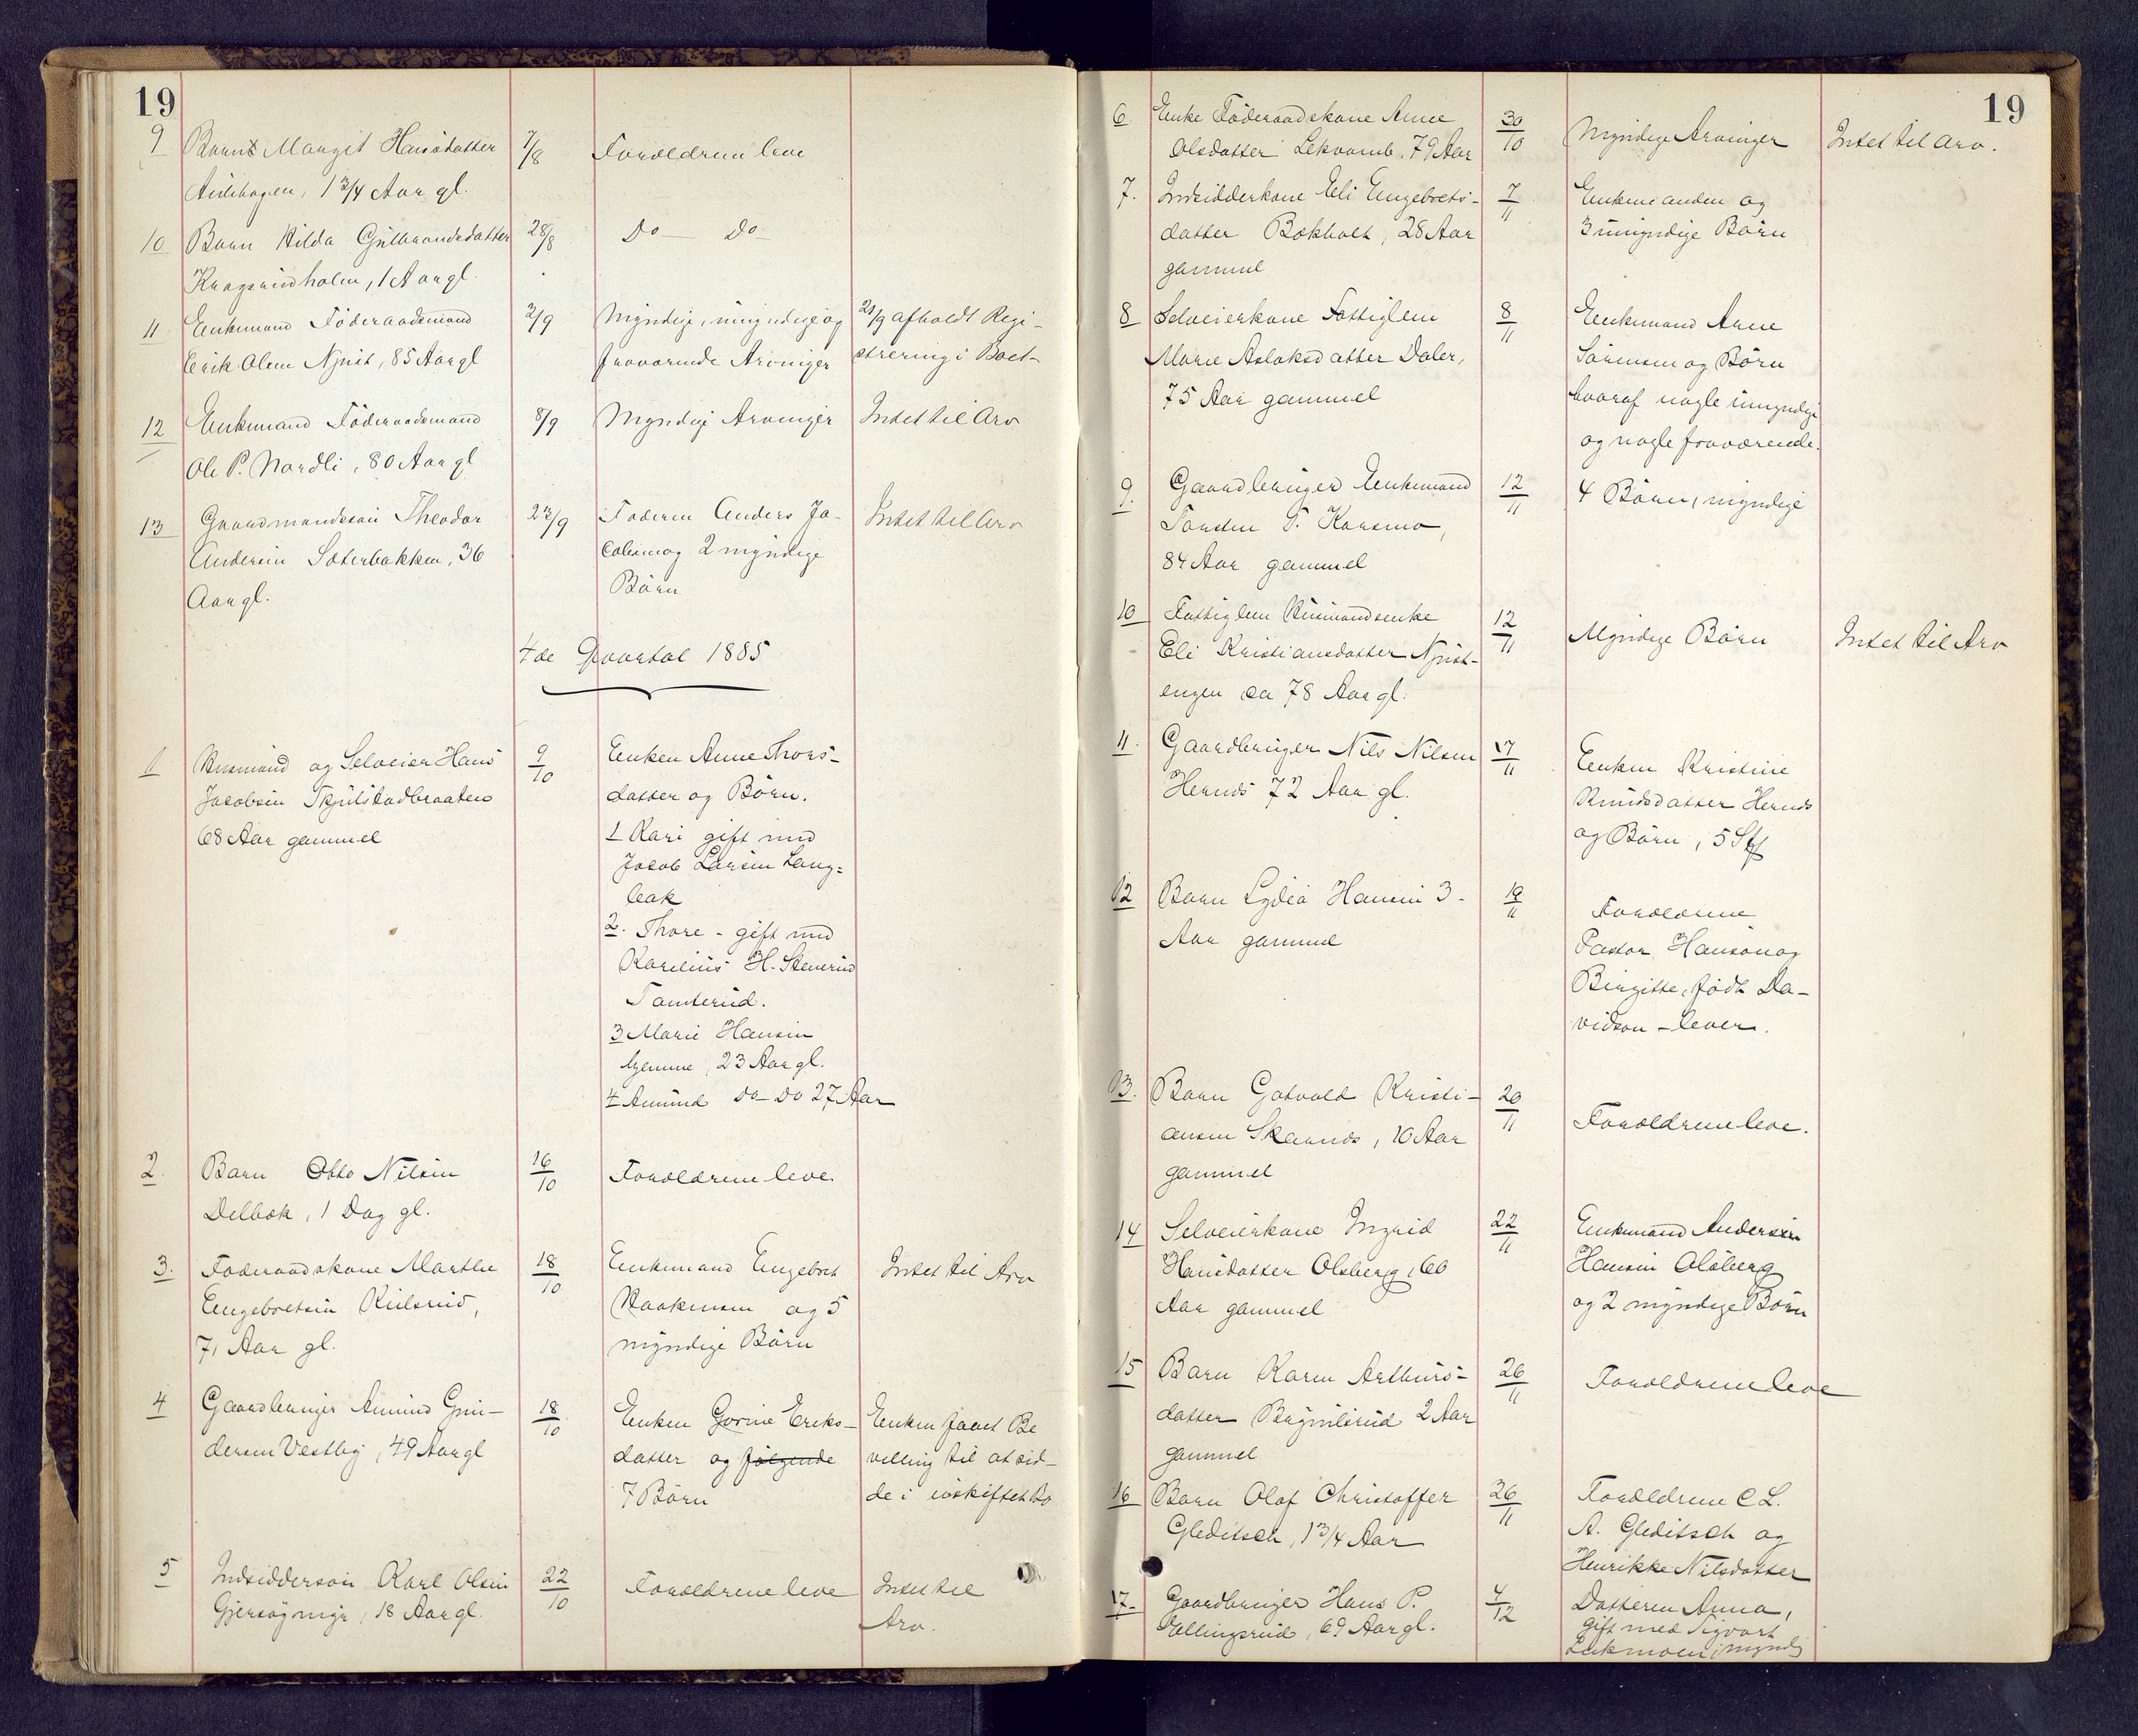 19
9 Barnet Margit Hansdatter 7/8 Forældrene leve
1 3/4 Aar gl.
10 Barn Hilda Gulbrandsdatter 28/8 Do Do
Kragsrudholen, 1 Aar gl.
11 Enkemand Föderaadsmand 2/9 Myndige, umyndige og 21/9 afholdt Regi-
Erik Olsen Njust, 85 Aar gl fraværende Arvinger strering i Boet-
12 Enkemand Föderaadsmand 8/9 Myndige Arvinger Intet til Arv
Ole P. Nordli, 80 Aar gl
13 Gaardmandssön Theodor 23/9 Faderen Anders Ja- Intet til Arv
Andersen Sæterbakken, 36 cobsen og 2 myndige
Aar gl. Börn
4de Qvartal 1885
1 Husmand og Selveier Hans 9/10 Enken Anne Thors-
Jacobsen Skjulstadbraaten datter og Börn.
68 Aar gammel 1 Kari gift med
Jacob Larsen Lang-
bak
2. Thore - gift med
Karelius H. Stenerud
Tamterud.
3 Marie Hansen
hjemme, 23 Aar gl.
4 Amund Do Do 27 Aar
2. Barn Otto Nilsen 16/10 Forældrene leve.
Delbæk, 1 Dag gl.
3. Föderaadskone Marthe 18/10 Enkemand Engebret Intet til Arv
Engebretsen Kulsrud, Haakensen og 5
71 Aar gl. myndige Börn
4 Gaardbruger Amund Gun- 18/10 Enken Gorine Eriks- Enken faaet Be
dersen Vestby, 49 Aar gl datter og følgende villing til at sid-
7 Börn de i uskiftet Bo
5 Indsiddersön Karl Olsen 22/10 Forældrene leve Intet til
Gjersöymyr, 18 Aar gl. Arv.
19
6 Enke Föderaadskone Anne 30/10 Myndige Arvinger Intet til Arv.
Olsdatter Lekvamb. 79 Aar
7. Indsidderkone Eli Engebrets- 7/11 Enkemanden og
datter Bækholt, 28 Aar 3 umyndige Börn
gammel
8 Selveierkone Fattiglem 8/11 Enkemand Arne
Marie Aslaksdatter Daler, Sörensen og Börn
75 Aar gammel hvoraf nogle umyndige
og nogle fraværende.
9. Gaardbruger Enkemand 12/11 4 Börn, myndige
Torsten T. Korsmo,
84 Aar gammel
10 Fattiglem Husmandsenke 12/11 Myndige Börn Intet til Arv
Eli Kristiansdatter Njust-
engen ca 78 Aar gl.
11. Gaardbruger Nils Nilsen 17/11 Enken Kristine
Hernes 72 Aar gl. Knudsdatter Hernes
og Börn, 5 Stk
12 Barn Lydia Hansen 3- 19/11 Forældrene
Aar gammel Pastor Hanson og
Birgitte, født Da-
vidson - lever.
13. Barn Gotvald Kristi- 20/11 Forældrene leve.
ansen Skarnes, 10 Aar
gammel
14 Selveierkone Ingrid 22/11 Enkemand Andersen
Hansdatter Olsberg, 60 Hansen Olsberg
Aar gammel og 2 myndige Börn
15 Barn Karen Arthurs- 26/11 Forældrene leve
datter 2 Aar
gammel
16 Barn Olaf Christoffer 26/11 Forældrene C L.
Gleditsch, 1 3/4 Aar A. Gleditsch og
Henrikke Nilsdatter
17- Gaardbruger Hans P. 4/12 Datteren Anna,
Ellingsrud, 69 Aar gl. gift med Sigvart
Lukmoen, myndig